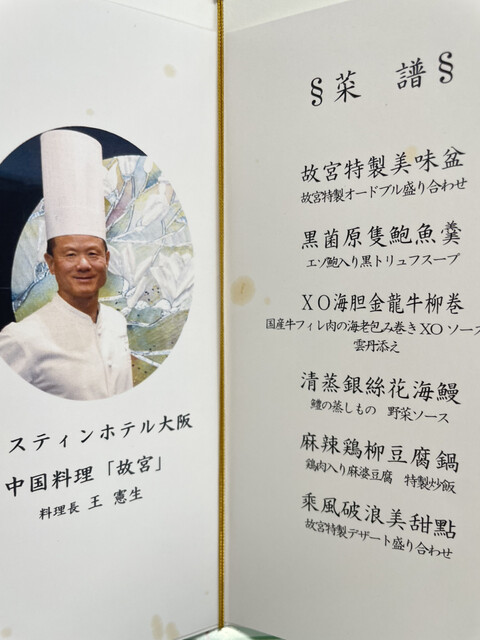 スティンホテル大阪
中国料理「故宮」
料理長 王 憲生
§菜 譜§
故宮特製美味盆
故宮特製オードブル盛り合わせ
黒菌原隻鮑魚羹
エゾ鮑入り黒トリュフスープ
XO海胆金龍牛柳巻
国産牛フィレ肉の海老包み巻きXOソース
雲丹添え
清蒸銀絲花海鰻
鱧の蒸しもの 野菜ソース
麻辣鶏柳豆腐鍋
鶏肉入り麻婆豆腐 特製炒飯
乘風破浪美甜點
故宮特製デザート盛り合わせ